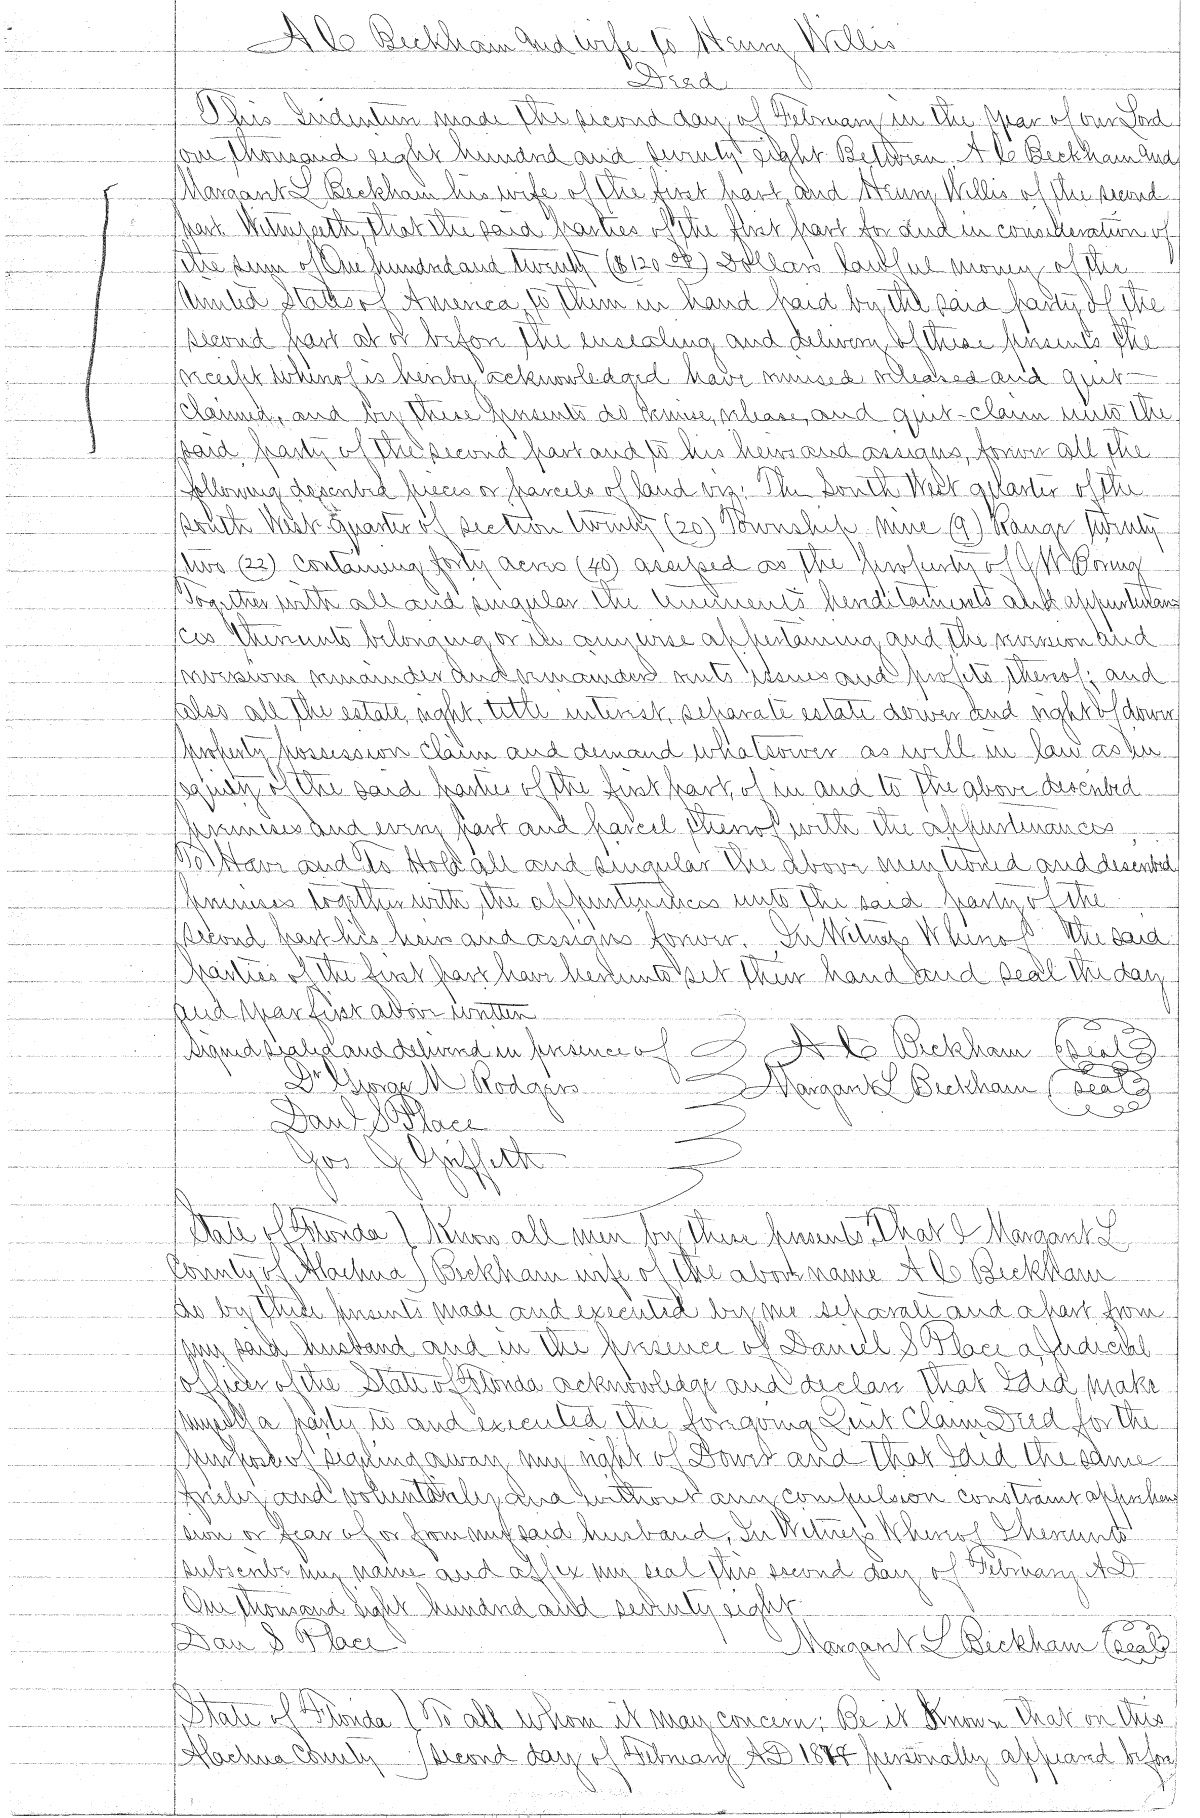 A C Beckham and wife to Henry Willis
Deed
This Indenture made the second day of February in the year of our Lord
one thousand eight hundred and seventy eight Between A C Beckham and
Margaret L Beckham his wife of the first part, and Henry Willis of the second
part Witnesseth, that the said parties of the first part for and in consideration of
the sum of One hundred and twenty ($120.00) Dollars lawful money of the
United States of America, to them in hand paid by the said party of the
second part at or before the ensealing and delivery of these presents the
receipt whereof is hereby acknowledged have remised released and quit-
claimed, and by these presents do remise, release, and quit-claim unto the
said party of the second part and to his heirs and assigns, forever all the
following described pieces or parcels of land viz: The South West quarter of the
South West quarter of section twenty (20) Township nine (9) Range twenty
two (22) containing forty acres (40) assessed as the property of J W Boring
Together with all and singular the tenements hereditaments and appurtenan
ces thereunto belonging or in anywise appertaining and the reversion and
reversions remainder and remainders rents issues and profits thereof; and
also all the estate, right, title interest, separate estate dower and right of dower
property possession claim and demand whatsoever as well in law as in
equity of the said parties of the first part, of in and to the above described
premises and every part and parcel thereof with the appurtenances
To Have and To Hold all and singular the above mentioned and described
premises together with the appurtenances unto the said party of the
second part his heirs and assigns forever. In Witness Whereof the said
parties of the first part have hereunto set their hand and seal the day
and year first above written
Signed sealed and delivered in presence of A C Beckham (seal)
Dr George M Rodgers Margaret L Beckham (seal)
Danl S Place
Jos J Griffeth
State of Florida } Know all men by these presents, That I Margaret L
County of Alachua } Beckham wife of the above name A C Beckham
do by these presents made and executed by me separate and apart from
my said husband and in the presence of Daniel S Place a Judicial
officer of the State of Florida acknowledge and declare that I did make
myself a party to and executed the foregoing Quit Claim Deed for the
purpose of signing away my right of Dower and that I did the same
freely and voluntarily and without any compulsion constraint apprehen
sion or fear of or from my said husband, In Witness Whereof I hereunto
subscribe my name and affix my seal this second day of February A D
One thousand eight hundred and seventy eight
Dan S Place Margaret L Beckham (seal)
State of Florida } To all whom it may concern; Be it Known that on this
Alachua County } second day of February A D personally appeared before